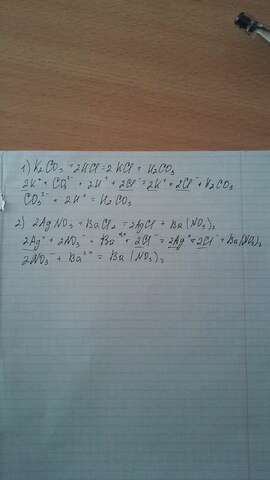 1) K₂CO₃ + 2HCl = 2KCl + H₂CO₃
2K⁺ + CO₃²⁻ + 2H⁺ + 2Cl⁻ = 2K⁺ + 2Cl⁻ + H₂CO₃
CO₃²⁻ + 2H⁺ = H₂CO₃
2) 2AgNO₃ + BaCl₂ = 2AgCl + Ba(NO₃)₂
2Ag⁺ + 2NO₃⁻ + Ba²⁺ + 2Cl⁻ = 2Ag⁺ + 2Cl⁻ + Ba(NO₃)₂
2NO₃⁻ + Ba²⁺ = Ba(NO₃)₂